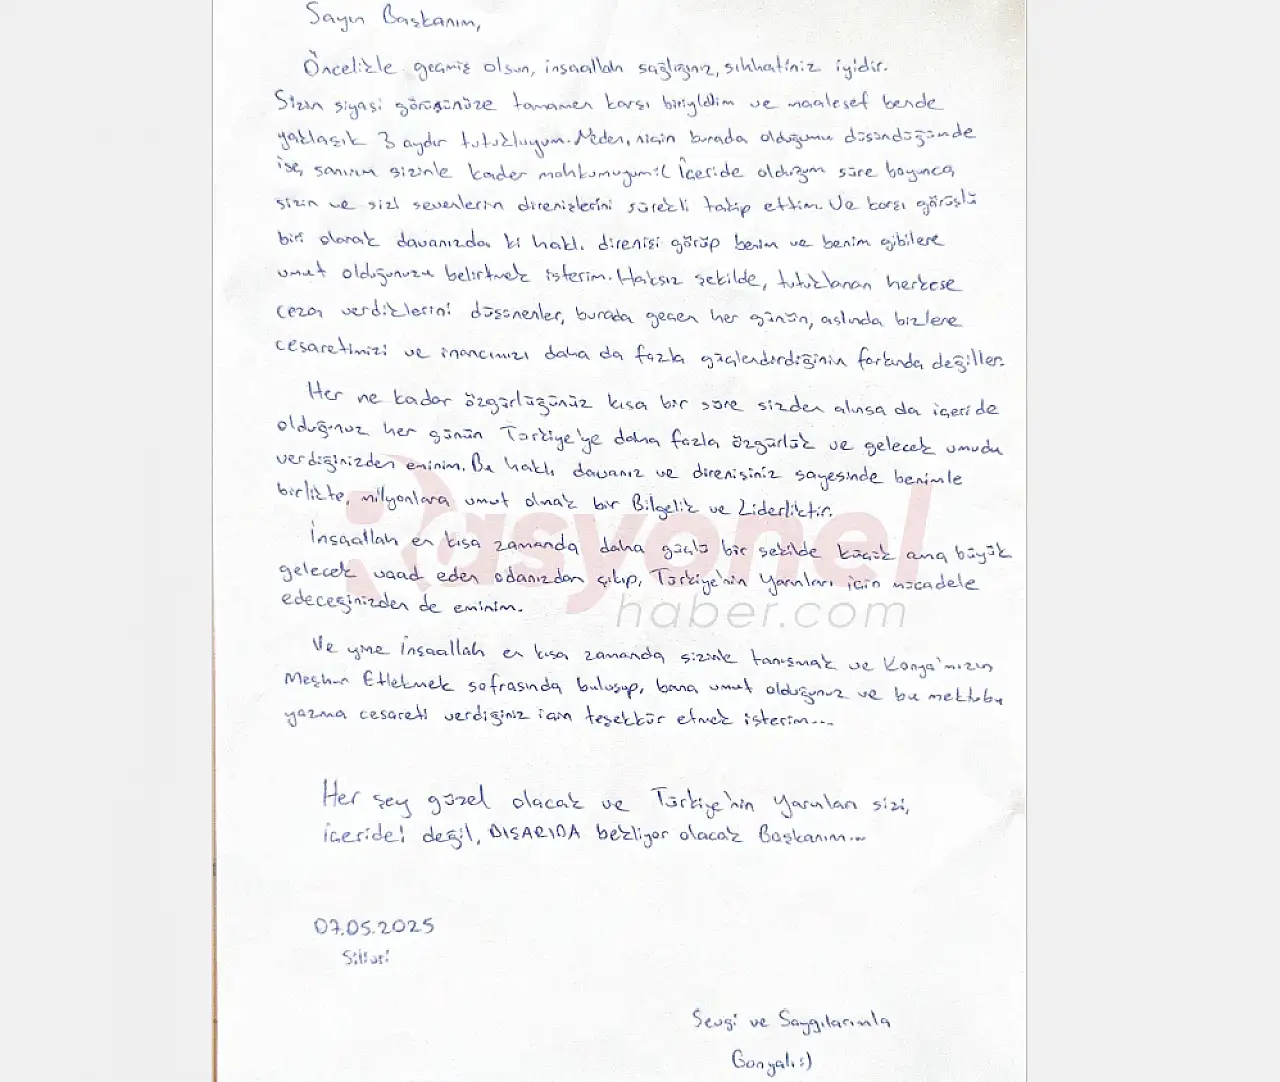 Sayın Başkanım,
Öncelikle geçmiş olsun, inşaallah sağlığınız, sıhhatiniz iyidir.
Sizin siyasi görüşünüze tamamen karşı biriyldim ve maalesef bende
yaklaşık 3 aydır tutukluyum. Neden, niçin burada olduğumu düşündüğümde
ise, sanırım sizinle kader mahkumuyum:( İçeride olduğum süre boyunca,
sizin ve sizi sevenlerin direnişlerini sürekli takip ettim. Ve karşı görüşlü
biri olarak davanızda ki haklı direnişi görüp benim ve benim gibilere
umut olduğunuzu belirtmek isterim. Haksız şekilde, tutuklanan herkese
ceza verdiklerini düşünenler, burada geçen her günün, aslında bizlere
cesaretimizi ve inancımızı daha da fazla güçlendirdiğinin farkında değiller.
Her ne kadar özgürlüğünüz kısa bir süre sizden alınsa da içeride
olduğunuz her günün Türkiye'ye daha fazla özgürlük ve gelecek umudu
verdiğinizden eminim. Bu haklı davanız ve direnişiniz sayesinde benimle
birlikte, milyonlara umut olmak bir Bilgelik ve Liderliktir.
İnşaallah en kısa zamanda daha güçlü bir şekilde küçük ama büyük
gelecek vaad eden odanızdan çıkıp, Türkiye'nin Yarınları için mücadele
edeceğinizden de eminim.
Ve yine İnşaallah en kısa zamanda sizinle tanışmak ve Konya'mızın
Meşhur Etlekmek sofrasında buluşup, bana umut olduğunuz ve bu mektubu
yazma cesareti verdiğiniz için teşekkür etmek isterim...
Her şey güzel olacak ve Türkiye'nin Yarınları sizi,
içeride! değil, DIŞARIDA bekliyor olacak Başkanım...
07.05.2025
Silivri
Sevgi ve Saygılarımla
Gonyalı:)
Rasyonel
haber.com